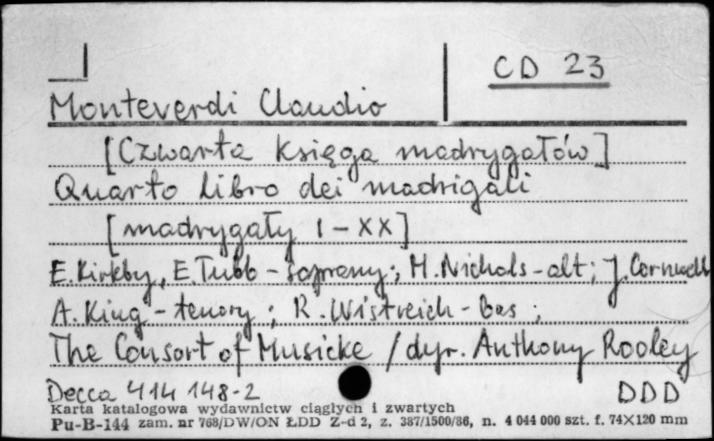 CD 23
Monteverdi Claudio
[Czwarta księga madrygałów]
Quarto libro dei madrigali
[madrygały I-XX]
E. Kirkby, E. Tubb - soprany; M. Nichols - alt; J. Cornwell
A. King - tenory; R. Wistreich - bas;
The Consort of Musicke / dyr. Anthony Rooley
Decca 414 148-2 DDD
Karta katalogowa wydawnictw ciągłych i zwartych
Pu-B-144 zam. nr 768/DW/ON ŁDD Z-d 2, z. 387/1500/86, n. 4 044 000 szt. f. 74×120 mm